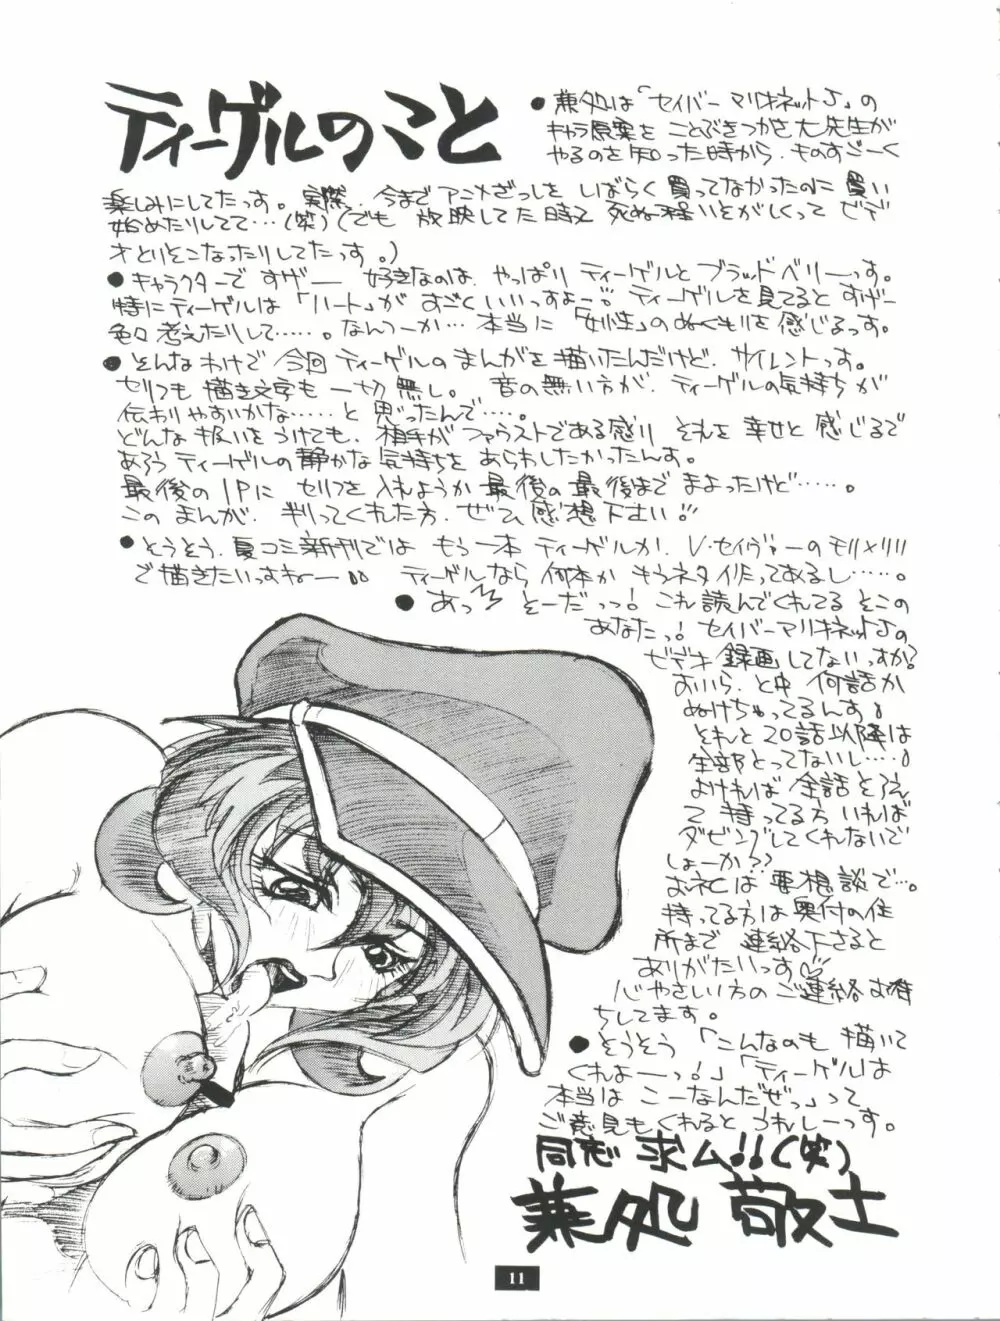 ティーゲルのこと
●兼処は「セイバーマリオネットJ」の
キャラ原案を ことぶきつかさ大先生が
やるのを知った時から、ものすごーく
楽しみにしてたっす。実際、今までアニメざっしを しばらく買ってなかったのに買い
始めたりしてて…(笑)(でも 放映してた時って 死ぬ程いそがしくって ビデ
オとりそこなったりしてたっす。)
●キャラクターで すげー 好きなのは、やっぱり ティーゲルと ブラッドベリーっす。
特にティーゲルは「ハート」が すごくいいっすよー!! ティーゲルを見てると すげー
色々考えたりして……。なんつーか… 本当に「女性」のぬくもりを感じるっす。
●そんなわけで 今回 ティーゲルの まんがを描いたんだけど、サイレントっす。
セリフも 描き文字も 一切無し。 音の無い方が、ティーゲルの気持ちが
伝わりやすいかな……と 思ったんで……。
どんな扱いをうけても、相手が ファウストである限り それを 幸せと感じるで
あろう ティーゲルの静かな気持ちを あらわしたかったんす。
最後の1Pに セリフを入れようか 最後の最後まで まよったけど……。
このまんが、判ってくれた方、ぜひ 感想下さい!!
●そうそう、夏コミ新刊では もう一本 ティーゲルか、V・セイヴァーのモリ×リリ
で描きたいっすねー!! ティーゲルなら 何本か もうネタ作ってあるし……。
●あっ そーだっっ! これ読んでくれてる そこの
あなたっ! セイバーマリオネットJの
ビデオ録画してないっすか?
おいら、と中 何話か
ぬけちゃってるんす!
それと 20話以降は
全部とってないし…!
よければ 全話そろえ
て 持ってる方いれば
ダビングしてくれないで
しょーか??
お礼は要相談で…。
持ってる方は奥付の住
所まで 連絡下さると
ありがたいっす♡
心やさしい方の ご連絡お待
ちしてます。
●そうそう 「こんなのも 描いて
くれよーっ!」「ティーゲルは
本当は こーなんだぜっ」って
ご意見もくれると うれしーっす。
同志 求ム!!(笑)
兼処 敬士
11